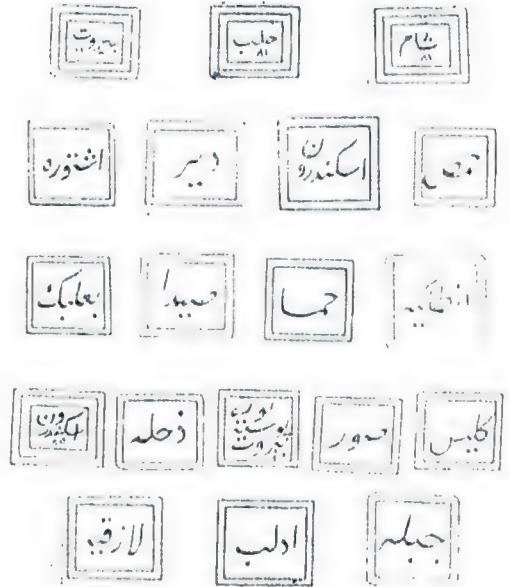 شام
٨١
حلب
٨١
بيروت
حمص
اسكندرون
اشتوره
انطاكيه
حما
صيدا
بعلبك
كليس
صور
پوسته
بيروت
ذحله
اسكندرون
جبله
ادلب
لازقيه